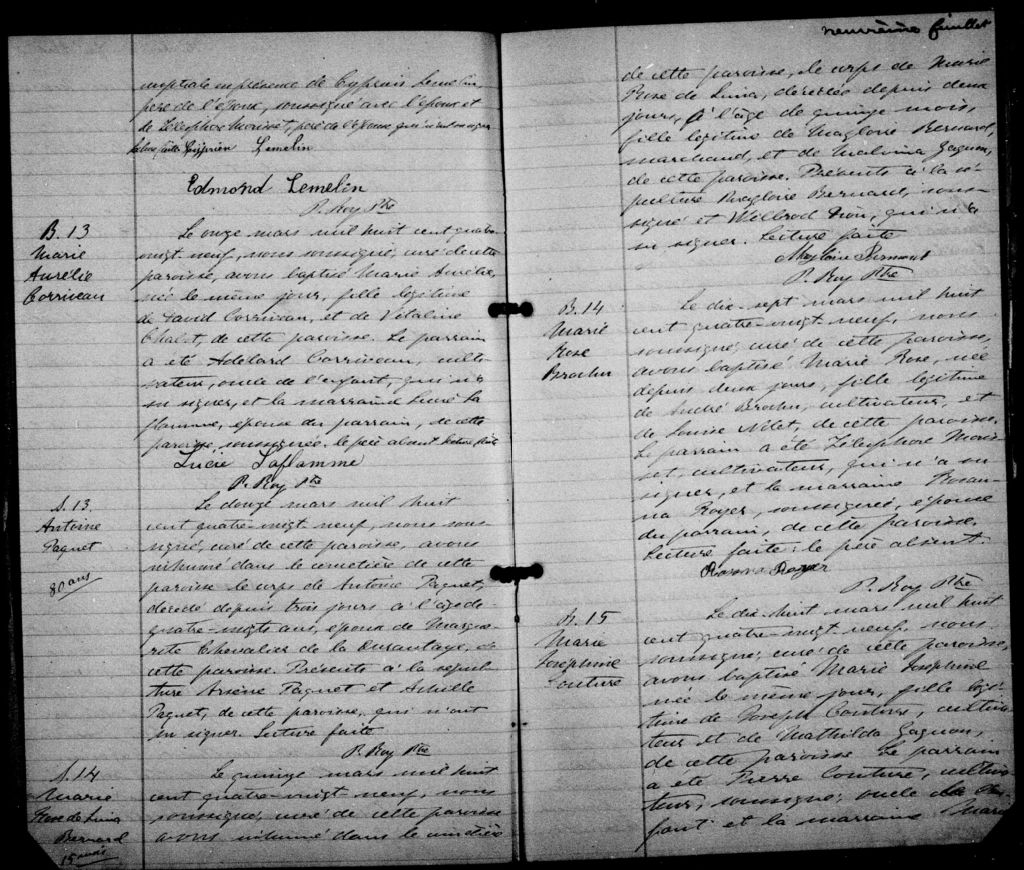 nuptiale en présence de Cyprien Lemelin,
père de l'époux, soussigné avec l'époux et
de Télesphore Morisset, père de l'épouse, qui n'a su signer
Lecture faite Cyprien Lemelin
Edmond Lemelin
P. Roy Ptre
B. 13
Marie
Aurélie
Corriveau
Le onze mars mil huit cent quatre
vingt neuf, nous soussigné, curé de cette
paroisse, avons baptisé Marie Aurélie,
née le même jour, fille légitime
de David Corriveau, et de Vitaline
Chalet, de cette paroisse. Le parrain
a été Adélard Corriveau, culti-
vateur, oncle de l'enfant, qui n'a
su signer, et la marraine Lucie La
flamme, épouse du parrain, de cette
paroisse, soussignée. le père absent lecture faite
Lucie Laflamme
P. Roy Ptre
S. 13.
Antoine
Paquet
80 ans
Le douze mars mil huit
cent quatre-vingt neuf, nous sous
signé, curé de cette paroisse, avons
inhumé dans le cimetière de cette
paroisse le corps de Antoine Paquet,
décédé depuis trois jours à l'âge de
quatre-vingts ans, époux de Margue-
rite Chevalier de la Durantaye, de
cette paroisse. Présents à la sépul
ture Arsène Paquet et Achille
Paquet, de cette paroisse, qui n'ont
su signer. Lecture faite
P. Roy Ptre
S. 14
Marie
Rose de Lima
Bernard
15 mois
Le quinze mars mil huit
cent quatre-vingt neuf, nous
soussigné, curé de cette paroisse
avons inhumé dans le cimetière
neuvième feuillet
de cette paroisse, le corps de Marie
Rose de Lima, décédée depuis deux
jours, à l'âge de quinze mois,
fille légitime de Magloire Bernard,
marchand, et de Malvina Gagnon,
de cette paroisse. Présents à la sé-
pulture Magloire Bernard, sous-
signé et Wilbrod Dion, qui n'a
su signer. Lecture faite
Magloire Bernard
P. Roy Ptre
B. 14
Marie
Rose
Brochu
Le dix-sept mars mil huit
cent quatre-vingt-neuf, nous
soussigné, curé de cette paroisse,
avons baptisé Marie Rose, née
depuis deux jours, fille légitime
de André Brochu, cultivateur, et
de Louise Nolet, de cette paroisse.
Le parrain a été Télesphore Moris
set, cultivateur, qui n'a su
signer, et la marraine Rosan-
na Royer, soussignée, épouse
du parrain, de cette paroisse.
Lecture faite: le père absent.
Rosana Royer
P. Roy Ptre
B. 15
Marie
Joséphine
Couture
Le dix-huit mars mil huit
cent quatre-vingt neuf, nous
soussigné, curé de cette paroisse,
avons baptisé Marie Joséphine
née le même jour, fille légi-
time de Joseph Couture, cultiva-
teur et de Mathilda Gagnon,
de cette paroisse Le parrain
a été Pierre Couture, cultiva-
teur, soussigné, oncle de l'en
fant et la marraine Marie